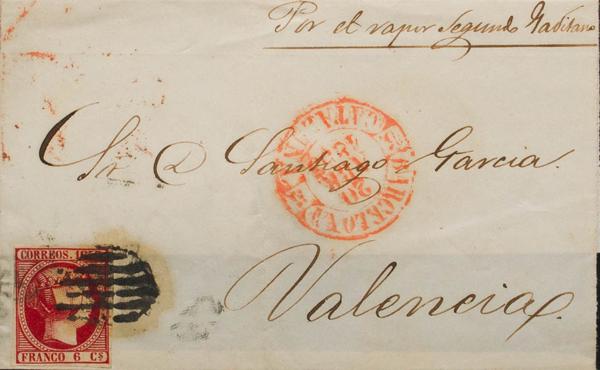 Por el vapor Segundo Gaditano
Sr. D. Santiago Garcia.
Valencia.
BARCELONA
CATALUÑA
20
CORREOS.
FRANCO 6 Cs